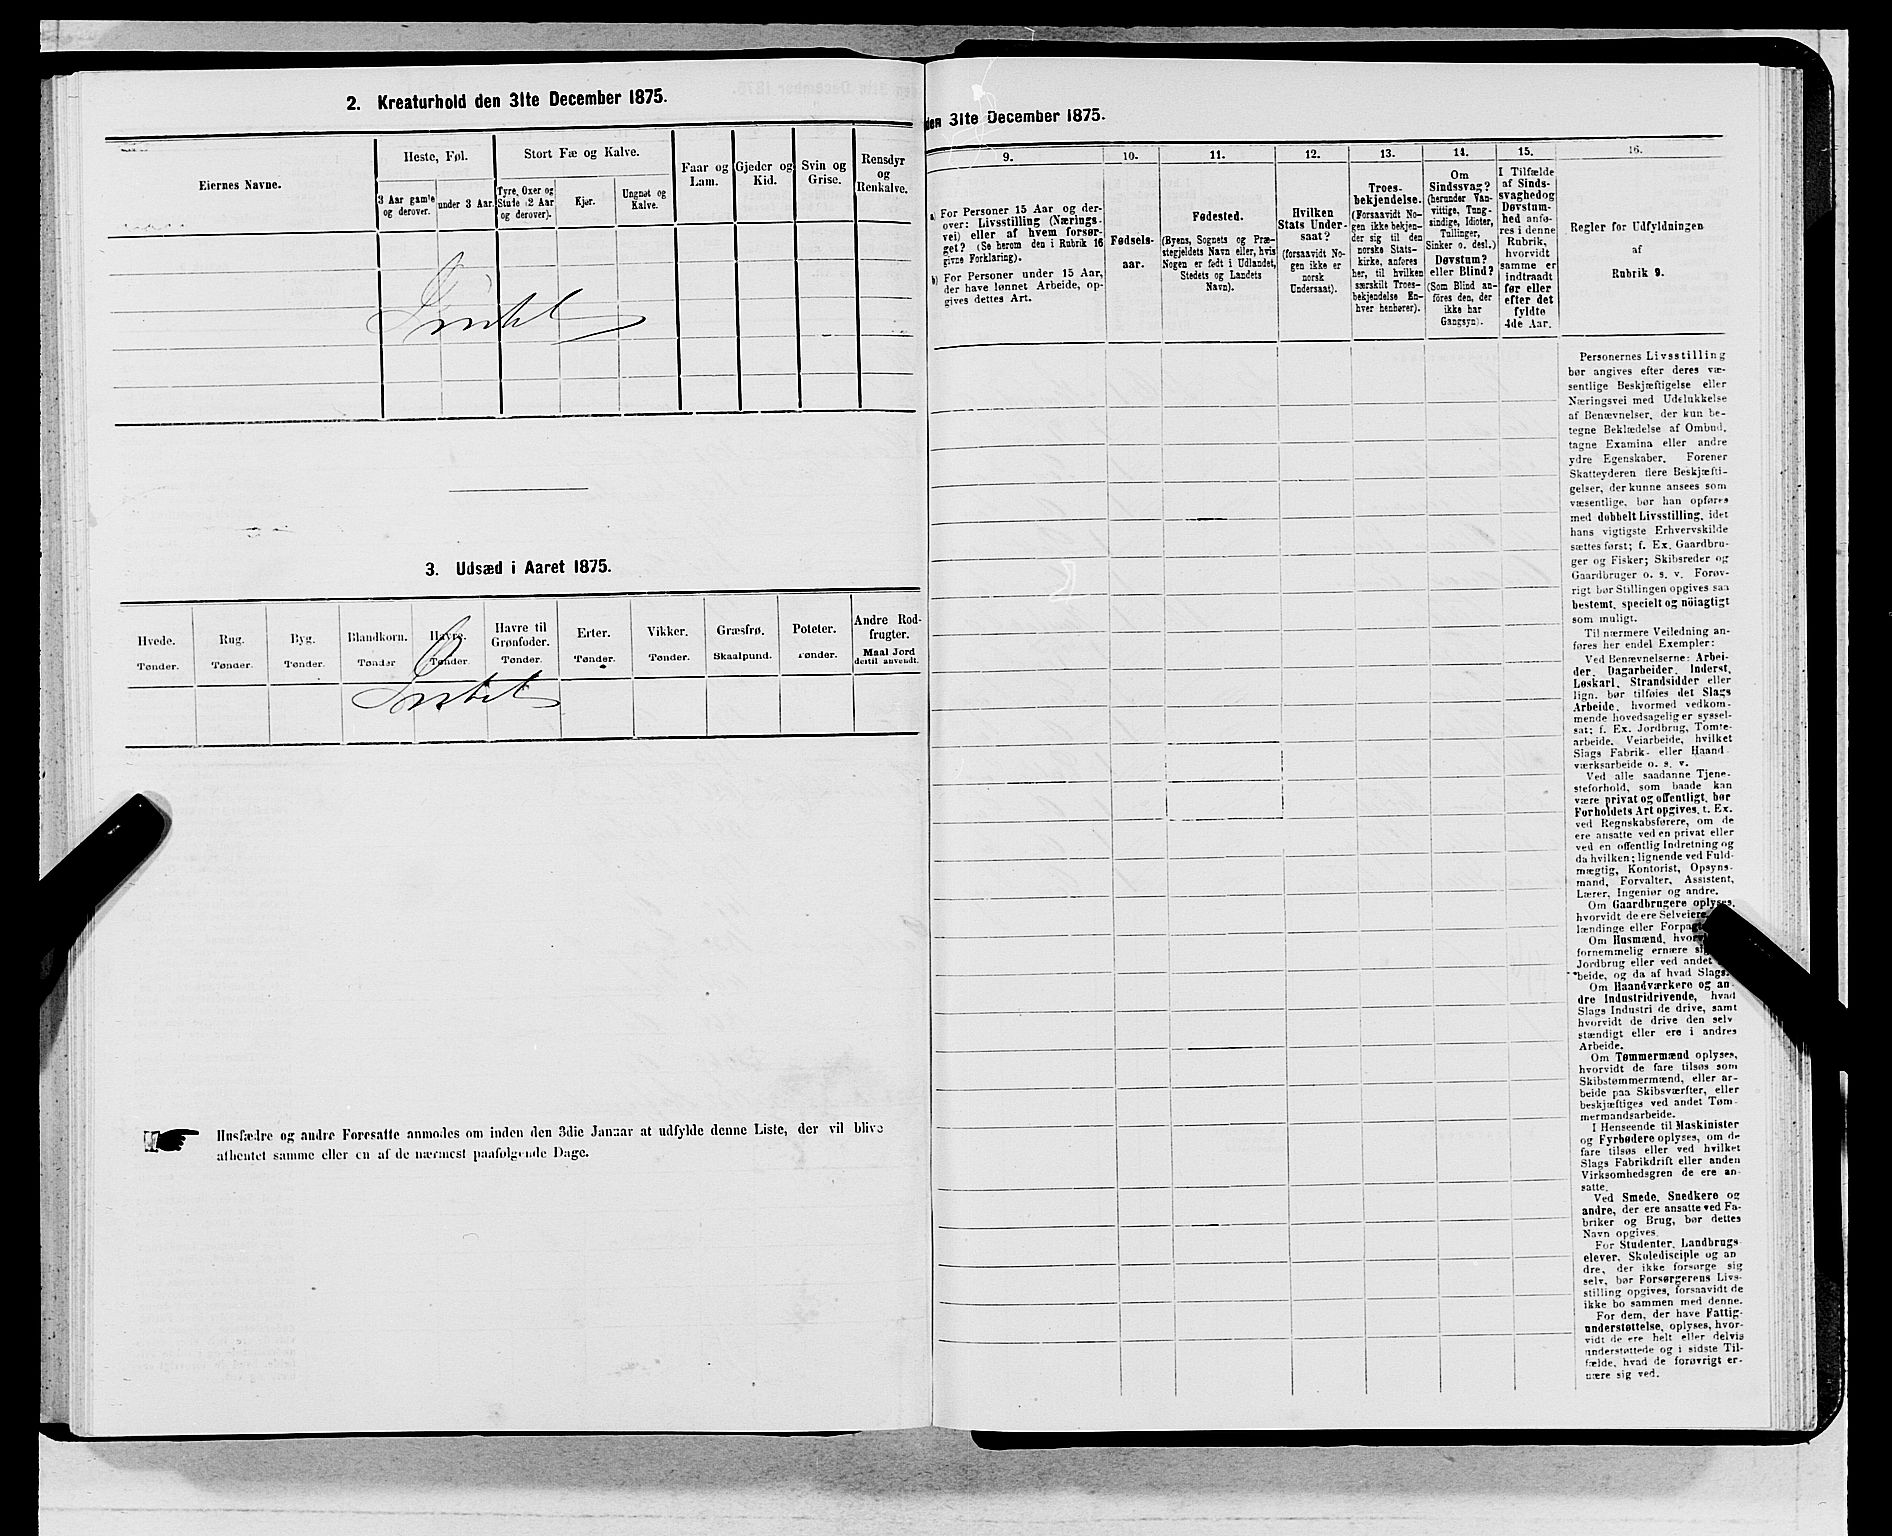 2. Kreaturhold den 31te December 1875.
Eiernes Navne.
Heste, Føl.
3 Aar gamle og derover.
under 3 Aar.
Stort Fæ og Kalve.
Tyre, Oxer og Stude (2 Aar og derover).
Kjør.
Ungnøt og Kalve.
Faar og Lam.
Gjeder og Kid.
Svin og Grise.
Rensdyr og Renkalve.
Intet
3. Udsæd i Aaret 1875.
Hvede. Tønder.
Rug. Tønder.
Byg. Tønder.
Blandkorn. Tønder
Havre. Tønder.
Havre til Grønfoder. Tønder.
Erter. Tønder.
Vikker. Tønder.
Græsfrø. Skaalpund.
Poteter. Tønder.
Andre Rodfrugter. Maal Jord dertil anvendt.
Intet
Husfædre og andre Foresatte anmodes om inden den 3die Januar at udfylde denne Liste, der vil blive
afhentet samme eller en af de nærmest paafølgende Dage.
den 31te December 1875.
9.
a) For Personer 15 Aar og derover: Livsstilling (Næringsvei) eller af hvem forsørget? (Se herom den i Rubrik 16 givne Forklaring).
b) For Personer under 15 Aar, der have lønnet Arbeide, opgives dettes Art.
10.
Fødselsaar.
11.
Fødested.
(Byens, Sognets og Præstegjeldets Navn eller, hvis Nogen er født i Udlandet, Stedets og Landets Navn).
12.
Hvilken Stats Undersaat?
(forsaavidt Nogen ikke er norsk Undersaat).
13.
Troesbekjendelse.
(Forsaavidt Nogen ikke bekjender sig til den norske Statskirke, anføres her, til hvilken særskilt Troesbekjendelse Enhver henhører).
14.
Om Sindssvag?
(herunder Vanvittige, Tungsindige, Idioter, Tullinger, Sinker o. desl.)
Døvstum? eller Blind?
(Som Blind anføres den, der ikke har Gangsyn).
15.
I Tilfælde af Sindssvaghed og Døvstumhed anføres i denne Rubrik, hvorvidt samme er indtraadt før eller efter det fyldte 4de Aar.
16.
Regler for Udfyldningen
af
Rubrik 9.
Personernes Livsstilling
bør angives efter deres væ-
sentlige Beskjæftigelse eller
Næringsvei med Udelukkelse
af Benævnelser, der kun be-
tegne Beklædelse af Ombud,
tagne Examina eller andre
ydre Egenskaber. Forener
Skatteyderen flere Beskjæfti-
gelser, der kunne ansees som
væsentlige, bør han opføres
med dobbelt Livsstilling, idet
hans vigtigste Erhvervskilde
sættes først; f. Ex. Gaardbru-
ger og Fisker; Skibsreder og
Gaardbruger o. s. v. Forøv-
rigt bør Stillingen opgives saa
bestemt, specielt og nöiagtigt
som muligt.
Til nærmere Veiledning an-
føres her endel Exempler:
Ved Benævnelserne: Arbei-
der, Dagarbeider, Inderst,
Løskarl, Strandsidder eller
lign. bør tilføies det Slags
Arbeide, hvormed vedkom-
mende hovedsagelig er syssel-
sat; f. Ex. Jordbrug, Tomte-
arbeide, Veiarbeide, hvilket
Slags Fabrik- eller Haand-
værksarbeide o. s. v.
Ved alle saadanne Tjene-
steforhold, som baade kan
være privat og offentligt, bør
Forholdets Art opgives, t. Ex.
ved Regnskabsførere, om de
ere ansatte ved en privat eller
ved en offentlig Indretning og
da hvilken; lignende ved Fuld-
mægtig, Kontorist, Opsyns-
mand, Forvalter, Assistent,
Lærer, Ingeniør og andre.
Om Gaardbrugere oplyses,
hvorvidt de ere Selveiere,
lændinge eller
Om Husmænd,
fornemmelig ernære
Jordbrug eller ved andet
beide, og da af hvad Slags.
Om Haandværkere og an-
dre Industridrivende, hvad
Slags Industri de drive, samt
hvorvidt de drive den selv-
stændigt eller ere i andres
Arbeide.
Om Tømmermænd oplyses,
hvorvidt de fare tilsøs som
Skibstømmermænd, eller ar-
beide paa Skibsværfter, eller
beskjæftiges ved andet Tøm-
mermandsarbeide.
I Henseende til Maskinister
og Fyrbødere oplyses, om de
fare tilsøs eller ved hvilket
Slags Fabrikdrift eller anden
Virksomhedsgren de ere an-
satte.
Ved Smede, Snedkere og
andre, der ere ansatte ved Fa-
briker og Brug, bør dettes
Navn opgives.
For Studenter, Landbrugs-
elever, Skoledisciple og an-
dre, der ikke forsørge sig
selv, bør Forsørgerens Livs-
stilling opgives, forsaavidt de
ikke bo sammen med denne.
For dem, der have Fattig-
understøttelse, oplyses, hvor-
vidt de ere helt eller delvis
understøttede og i sidste Til-
fælde, hvad de forøvrigt er-
nære sig ved.